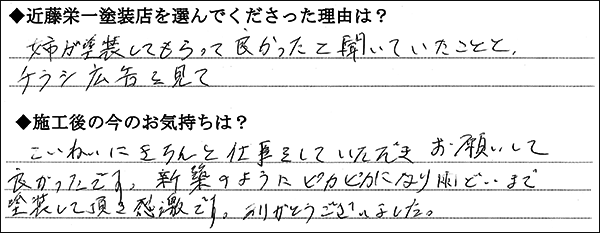 ◆近藤栄一塗装店を選んでくださった理由は？
姉が塗装してもらって良かったと聞いていたことと、
チラシ広告を見て
◆施工後の今のお気持ちは？
こいねいにきちんと仕事をしていただき お願いして
良かったです。新築のようにピカピカになり雨どいまで
塗装して頂き感激です。ありがとうございました。